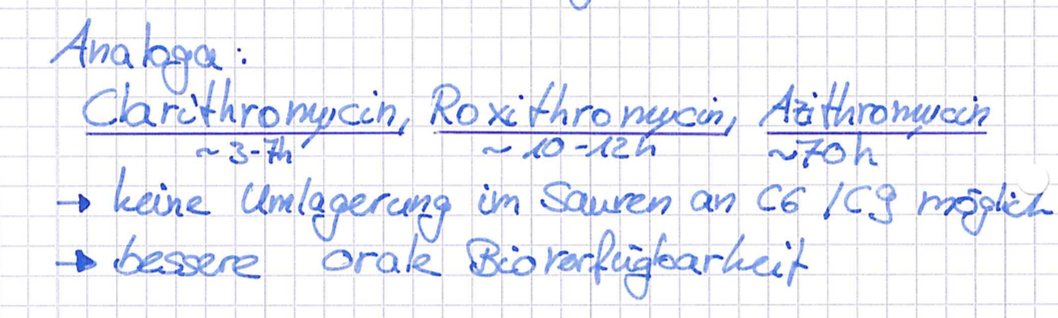 Analoga:
Clarithromycin, Roxithromycin, Azithromycin
~3-7h ~10-12h ~70h
→ keine Umlagerung im Sauren an C6/C9 möglich
→ bessere orale Bioverfügbarkeit